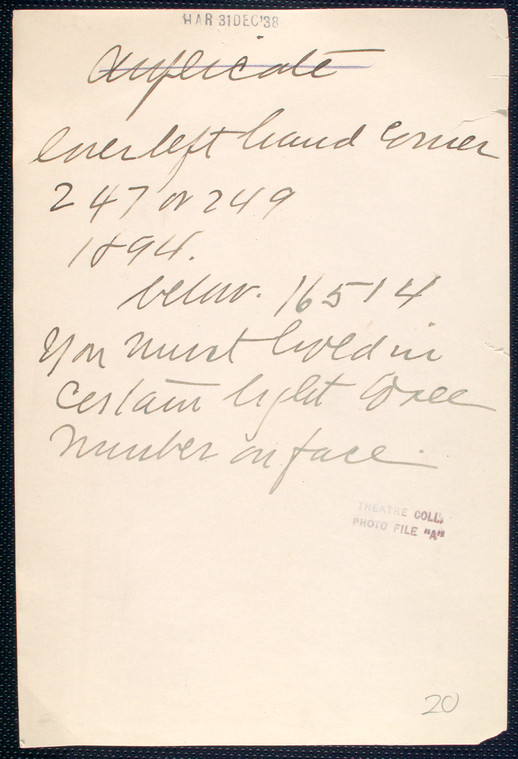 HAR 31 DEC '38
Duplicate
lower left hand corner
247 or 249
1894.
below. 16514
You must hold in
certain light to see
number on face.
THEATRE COLL.
PHOTO FILE "A"
20